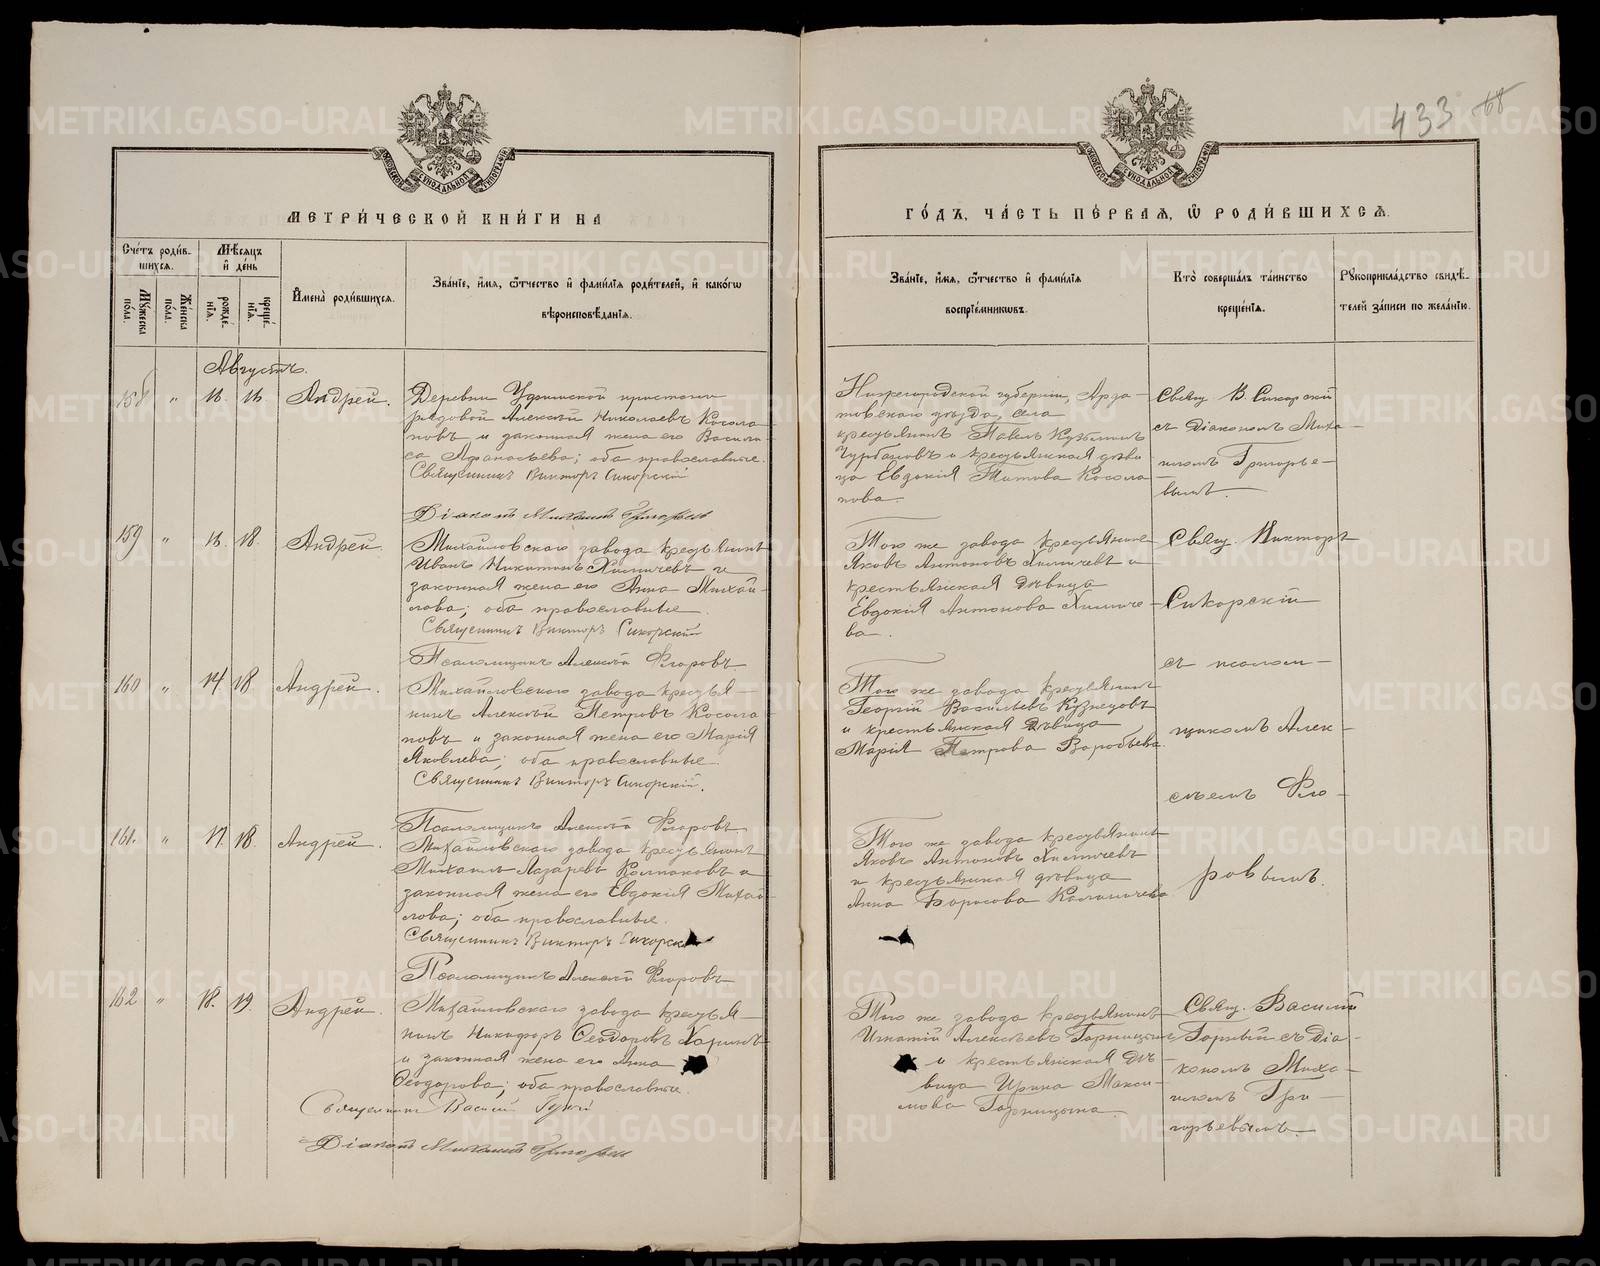 433 68
МЕТРИ́ЧЕСКОЙ КНИ́ГИ НА
ГО́ДЪ, ЧА́СТЬ ПЕ́РВАЯ, Ѡ҆ РОДИ́ВШИХСѦ.
Сче́тъ роди́в-
шихсѧ.
Мꙋжеска по́ла.
Же́нска по́ла.
Мѣ́сѧцъ
и҆ де́нь
рожде́-
нїѧ.
креще́-
нїѧ.
И҆мена̀ роди́вшихсѧ.
Зва́нїе, и҆́мѧ, ѻ҆́тчество и҆ фами́лїѧ роди́телей, и҆ како́гѡ
вѣроисповѣ́данїѧ.
Зва́нїе, и҆́мѧ, ѻ҆́тчество и҆ фами́лїѧ
воспрїе́мникѡвъ.
Кто̀ соверша́лъ та́инство
креще́нїѧ.
Рꙋкоприкла́дство свидѣ́-
телей за́писи по жела́нїю.
Августъ.
158 " 16. 16. Андрей.
Деревни Уфимской пристани
рядовой Алексѣй Николаевъ Косола-
повъ и законная жена его Васили-
са Афанасьева; оба православные.
Священникъ Викторъ Сикорскій
Діаконъ Михаилъ Григорьевъ
Нижегородской губерніи, Арда-
товскаго уѣзда, села
крестьянинъ Павелъ Кузьминъ
Чурбановъ и крестьянская дѣви-
ца Евдокія Титова Косола-
пова.
Свящ. В. Сикорскій
съ діакономъ Миха-
иломъ Григорье-
вымъ.
159 " 16. 18. Андрей.
Михайловскаго завода крестьянинъ
Иванъ Никитинъ Химичевъ и
законная жена его Анна Михай-
лова; оба православные.
Священникъ Викторъ Сикорскій
Псаломщикъ Алексѣй Флоровъ.
Того же завода крестьянинъ
Яковъ Антоновъ Химичевъ и
крестьянская дѣвица
Евдокія Антонова Химиче-
ва.
Свящ. Викторъ
Сикорскій
съ псалом-
щикомъ Алек-
сѣемъ Фло-
ровымъ.
160 " 17. 18. Андрей.
Михайловскаго завода крестья-
нинъ Алексѣй Петровъ Косола-
повъ и законная жена его Марія
Яковлева; оба православные.
Священникъ Викторъ Сикорскій.
Псаломщикъ Алексѣй Флоровъ
Того же завода крестьянинъ
Георгій Васильевъ Кузнецовъ
и крестьянская дѣвица
Марія Петрова Воробьева.
161. " 17. 18. Андрей.
Михайловскаго завода крестьянинъ
Михаилъ Лазаревъ Колпаковъ и
законная жена его Евдокія Михай-
лова; оба православные.
Священникъ Викторъ Сикорск
Псаломщикъ Алексѣй Флоровъ
Того же завода крестьянинъ
Яковъ Антоновъ Химичевъ
и крестьянская дѣвица
Анна Борисова
162 " 18. 19. Андрей.
Михайловскаго завода крестья-
нинъ Никифоръ Ѳеодоровъ Харинъ
и законная жена его Анна
Ѳеодорова; оба православные.
Священникъ Василій
Діаконъ Михаилъ Григорьевъ
Того же завода крестьянинъ
Игнатій Алексѣевъ Горницынъ
и крестьянская дѣ-
вица Ирина Макси-
мова Горницына.
Свящ. Василій
съ діа-
кономъ Миха-
иломъ Гри-
горьевымъ.
METRIKI.GASO-URAL.RU